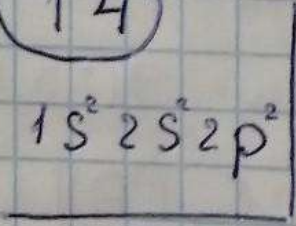 14
1s²2s²2p²